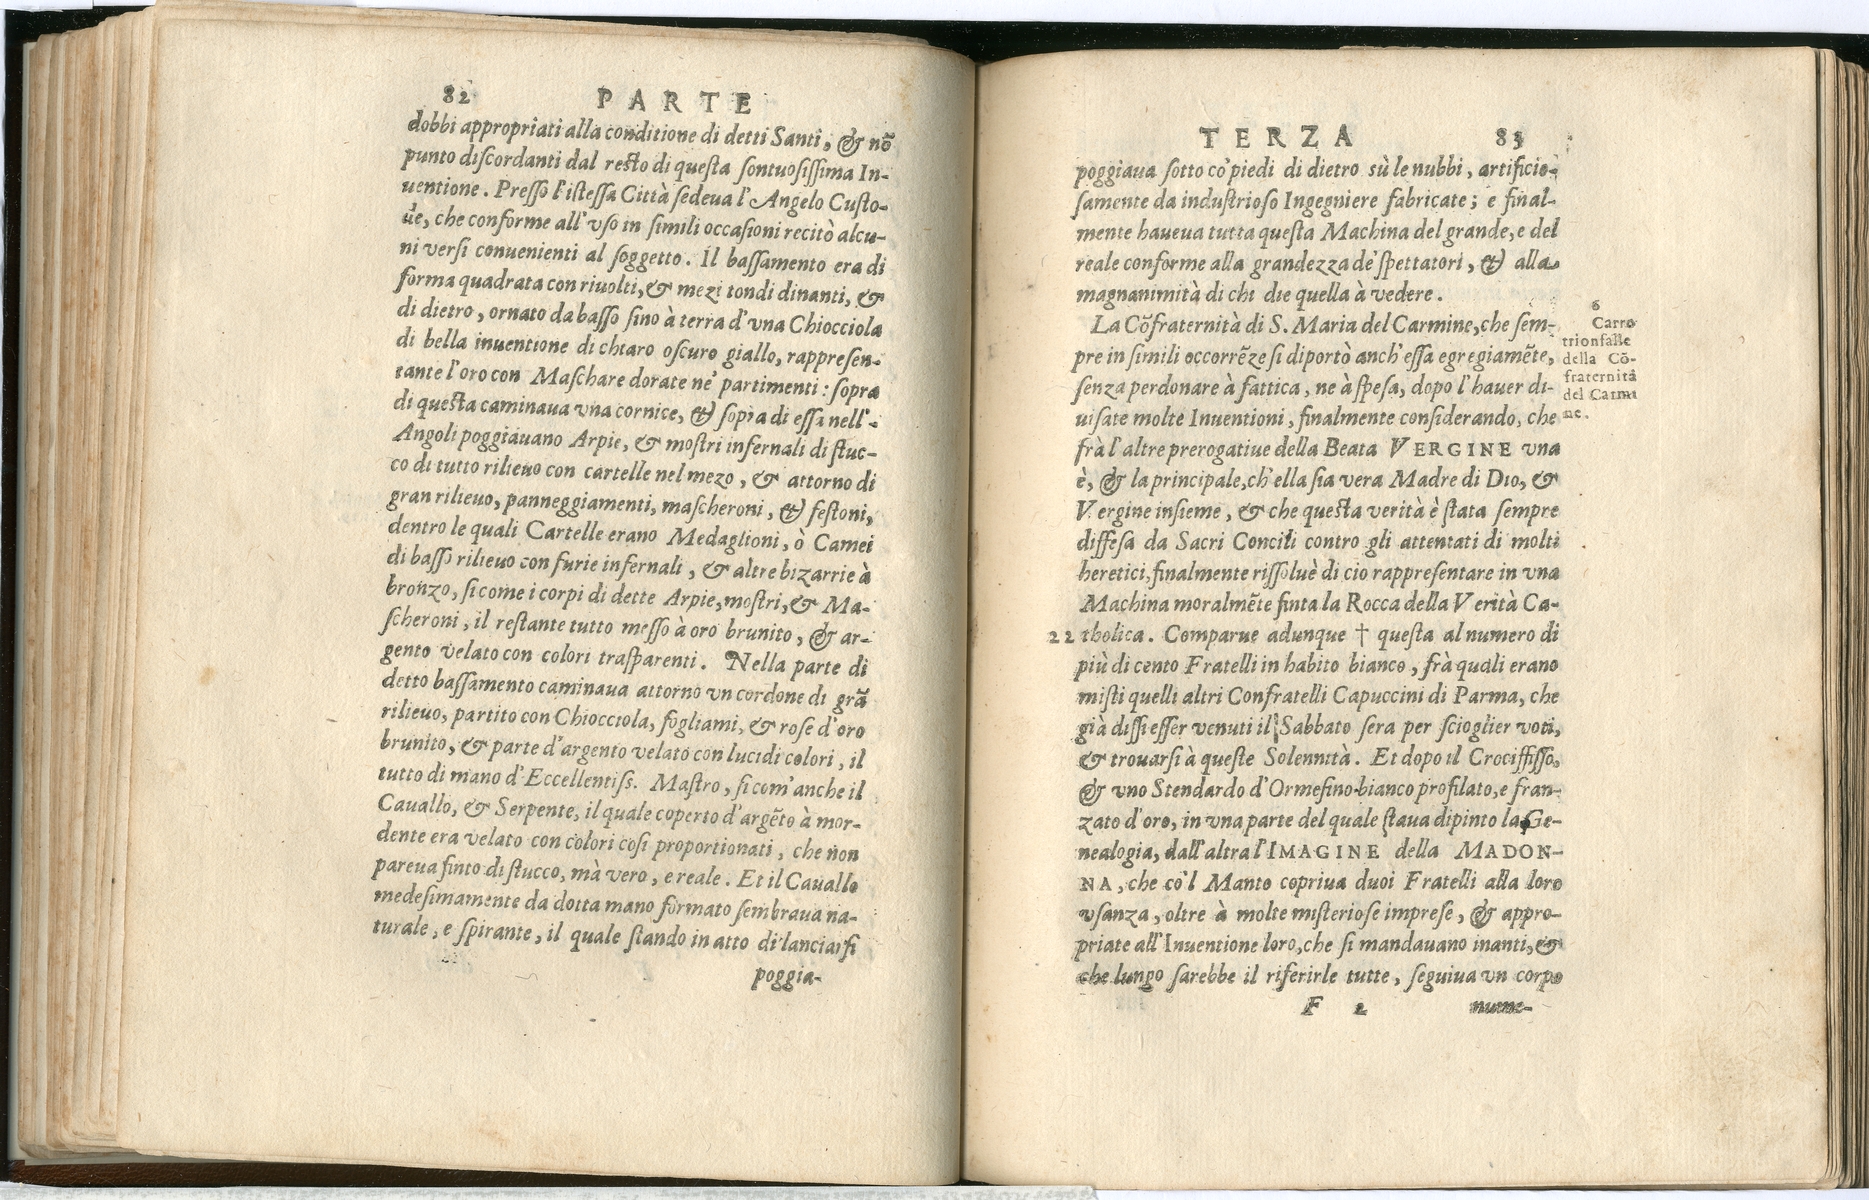 82 PARTE
dobbi appropriati alla conditione di detti Santi, & nõ
punto discordanti dal resto di questa sontuosissima In-
uentione. Presso l'istessa Città sedeua l'Angelo Custo-
de, che conforme all'vso in simili occasioni recitò alcu-
ni versi conuenienti al soggetto. Il bassamento era di
forma quadrata con riuolti, & mezi tondi dinanti, &
di dietro, ornato da basso sino à terra d'vna Chiocciola
di bella inuentione di chiaro oscuro giallo, rappresen-
tante l'oro con Maschare dorate ne' partimenti: sopra
di questa caminaua vna cornice, & sopra di essa nell'-
Angoli poggiauano Arpie, & mostri infernali di stuc-
co di tutto rilieuo con cartelle nel mezo, & attorno di
gran rilieuo, panneggiamenti, mascheroni, & festoni,
dentro le quali Cartelle erano Medaglioni, ò Camei
di basso rilieuo con furie infernali, & altre bizarrie à
bronzo, si come i corpi di dette Arpie, mostri, & Ma-
scheroni, il restante tutto messo à oro brunito, & ar-
gento velato con colori trasparenti. Nella parte di
detto bassamento caminaua attorno vn cordone di grã
rilieuo, partito con Chiocciola, fogliami, & rose d'oro
brunito, & parte d'argento velato con lucidi colori, il
tutto di mano d'Eccellentiss. Mastro, si com'anche il
Cauallo, & Serpente, il quale coperto d'argẽto à mor-
dente era velato con colori così proportionati, che non
pareua finto di stucco, mà vero, e reale. Et il Cauallo
medesimamente da dotta mano formato sembraua na-
turale, e spirante, il quale stando in atto di lanciarsi
poggia-
TERZA 83
poggiaua sotto co' piedi di dietro sù le nubbi, artificio-
samente da industrioso Ingegniere fabricate; e final-
mente haueua tutta questa Machina del grande, e del
reale conforme alla grandezza de' spettatori, & alla
magnanimità di chi die quella à vedere.
La Cõfraternità di S. Maria del Carmine, che sem-
pre in simili occorrẽze si diportò anch'essa egregiamẽte,
senza perdonare à fattica, ne à spesa, dopo l'hauer di-
uisate molte Inuentioni, finalmente considerando, che
frà l'altre prerogatiue della Beata VERGINE vna
è, & la principale, ch'ella sia vera Madre di Dio, &
Vergine insieme, & che questa verità è stata sempre
diffesa da Sacri Concili contro gli attentati di molti
heretici, finalmente rissoluè di cio rappresentare in vna
Machina moralmẽte finta la Rocca della Verità Ca-
22 tholica. Comparue adunque † questa al numero di
più di cento Fratelli in habito bianco, frà quali erano
misti quelli altri Confratelli Capuccini di Parma, che
già dissi esser venuti il Sabbato sera per scioglier voti,
& trouarsi à queste Solennità. Et dopo il Crociffisso,
& vno Stendardo d'Ormesino bianco profilato, e fran-
zato d'oro, in vna parte del quale staua dipinto la Ge-
nealogia, dall'altra l'IMAGINE della MADON-
NA, che co'l Manto copriua duoi Fratelli alla loro
vsanza, oltre à molte misteriose imprese, & appro-
priate all'Inuentione loro, che si mandauano inanti, &
che lungo sarebbe il riferirle tutte, seguiua vn corpo
F 2 nume-
6
Carro
trionfalle
della Cõ-
fraternità
del Carmi
ne.